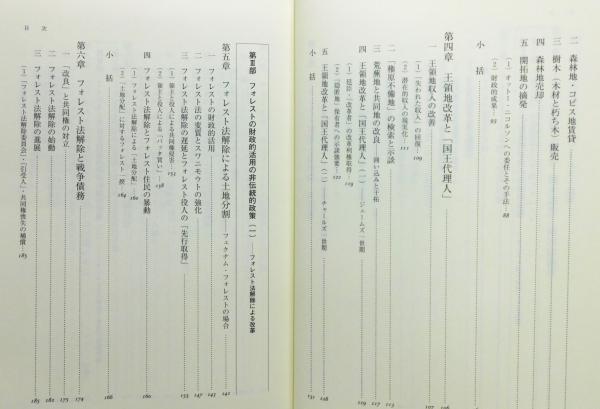 二　森林地・コピス地賃貸
三　樹木（木材と朽ち木）販売
四　森林地売却
五　開拓地の摘発
（1）オットー・ニコルソンへの委任とその手法…88
（2）財政的成果…93
小　括
第四章　王領地改革と「国王代理人」
一　王領地収入の改善…107
（1）「失われた収入」の回復…109
（2）潜在的収入の現実化…111
二　「権原不備地」の検索と示談…112
三　荒蕪地と共同地の改良――囲い込みと干拓…113
四　王領地改革と「国王代理人」（一）――ジェームズ一世期…117
（1）延臣・「改革者」の改革利権取得…119
（2）「隠匿地」保有者への示談強要…122
五　王領地改革と「国王代理人」（二）――チャールズ一世期…128
小　括…131
目　次
第Ⅲ部　フォレストの財政的活用の非伝統的政策（一）――フォレスト法解除による改革
第五章　フォレスト法解除による土地分割――フェクナム・フォレストの場合…141
一　フォレストの財政的活用…142
二　フォレスト法の変質とスワニモウトの強化…147
三　フォレスト法解除の遅延とフォレスト役人の「先行取得」…153
（1）領主と役人による共同権侵害…152
（2）領主と役人による「バッタ買い」…158
四　フォレスト法解除とフォレスト住民の暴動…160
（1）フォレスト法解除による「土地分配」…160
（2）「土地分配」に対するフォレスト一揆…164
小　括…166
第六章　フォレスト法解除と戦争債務…174
一　「改良」と共同権の対立…175
二　フォレスト法解除の始動…181
三　フォレスト法解除の進展…185
（1）「フォレスト法解除委員会」・「請受人」・共同権喪失の補償…185